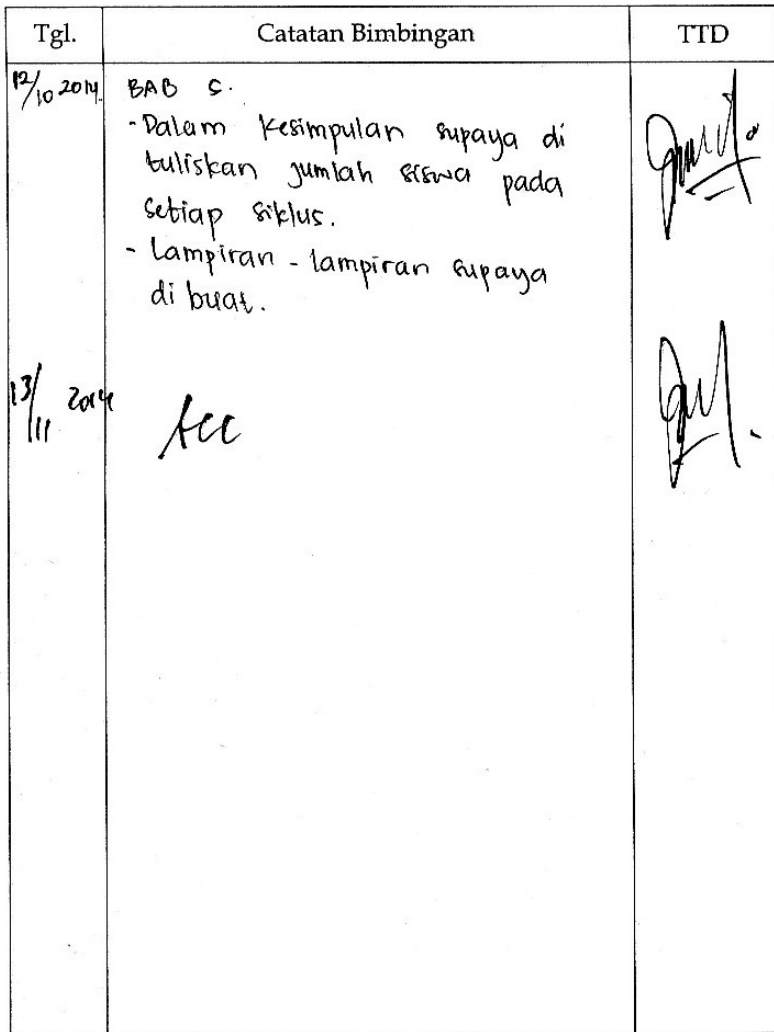 Tgl. Catatan Bimbingan TTD
12/10 2014. BAB 5.
- Dalam kesimpulan supaya di
tuliskan jumlah siswa pada
setiap siklus.
- Lampiran - lampiran supaya
di buat.
13/11 2014 Acc